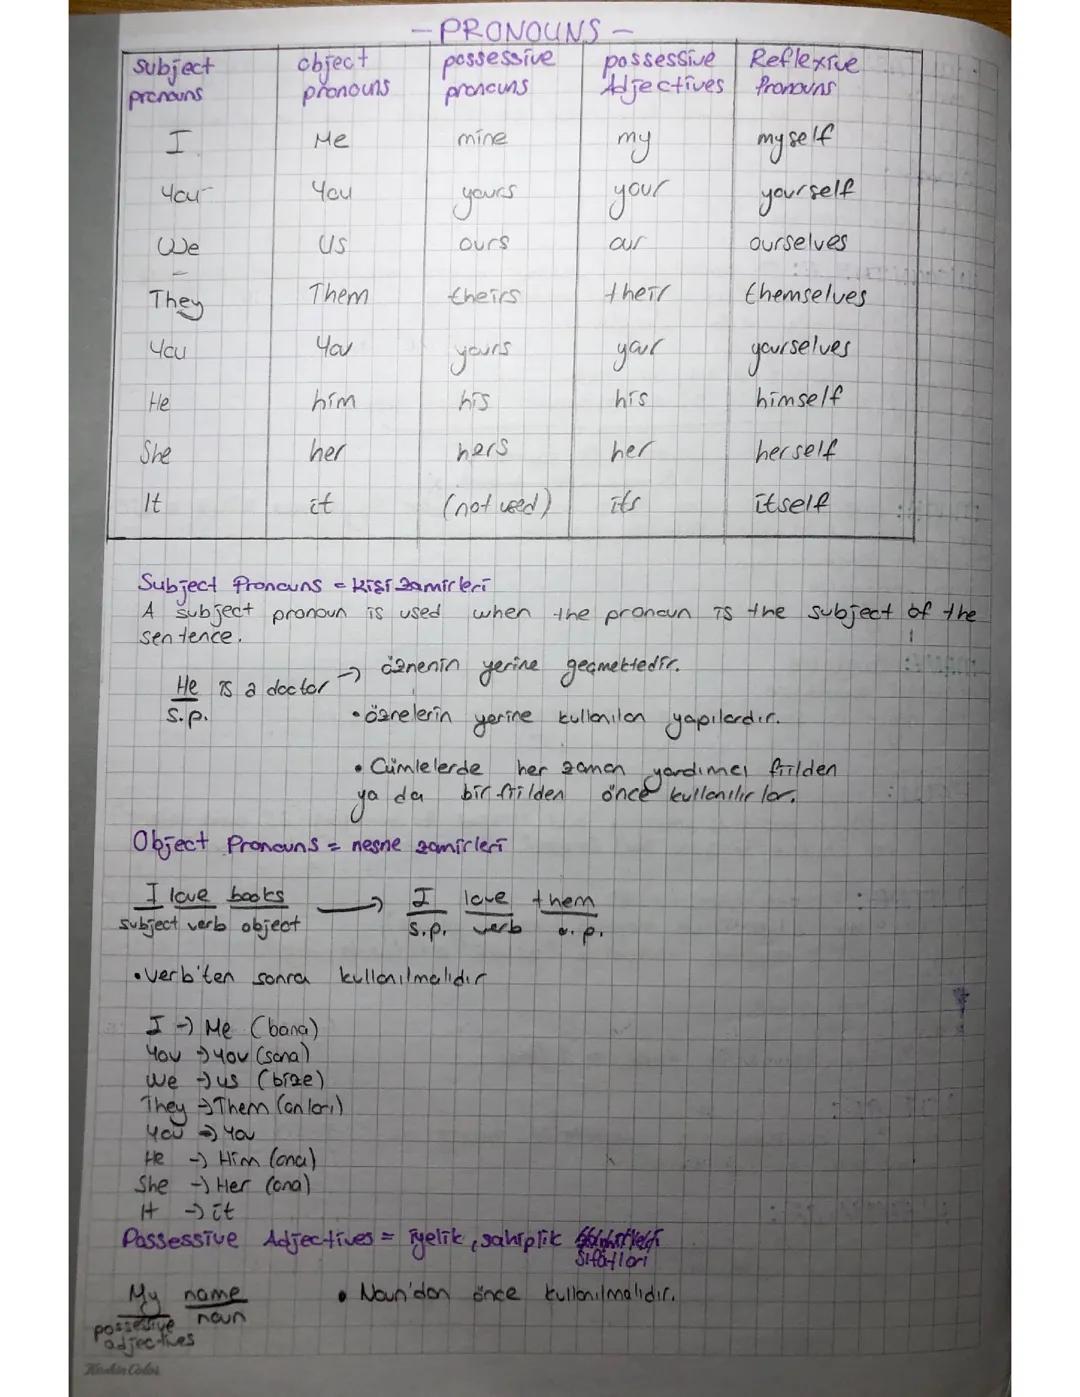 - PRONOUNS -
subject pronouns | object pronouns | possessive pronouns | possessive Adjectives | Reflexive Pronouns
I | Me | mine | my | myself
You | You | yours | your | yourself
We | US | ours | our | ourselves
They | Them | theirs | their | themselves
You | You | yours | your | yourselves
He | him | his | his | himself
She | her | hers | her | herself
It | it | (not used) | its | itself
Subject Pronouns = Kişi zamirleri
A subject pronoun is used when the pronoun is the subject of the
sentence.
He is a doctor → öznenin yerine geçmektedir.
s.p.
• öznelerin yerine kullanılan yapılardır.
• Cümlelerde her zaman yardımcı fiilden
ya da bir fiilden önce kullanılırlar.
Object Pronouns = nesne zamirleri
I love books → I love them
subject verb object s.p. verb o.p.
• Verb'ten sonra kullanılmalıdır
I → Me (bana)
You → You (sana)
We → us (bize)
They → Them (onları)
You → You
He → Him (ona)
She → Her (ona)
It → it
Possessive Adjectives = iyelik, sahiplik
sıfatları
My name • Noun'dan önce kullanılmalıdır.
possessive noun
adjectives